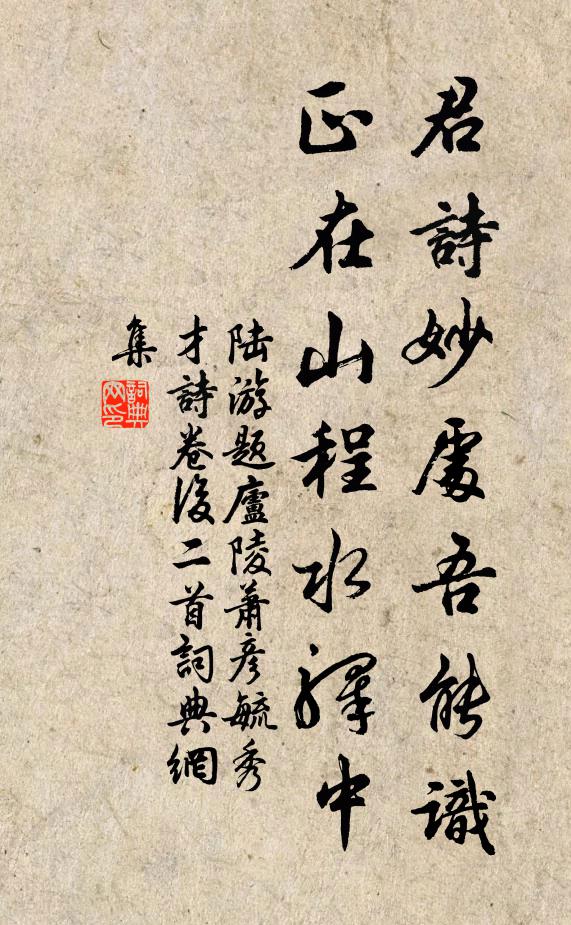 君詩妙處吾能識
正在山程水驛中
陸游題廬陵蕭彦毓秀
才詩卷後二首詞典網
集
詞典
网印